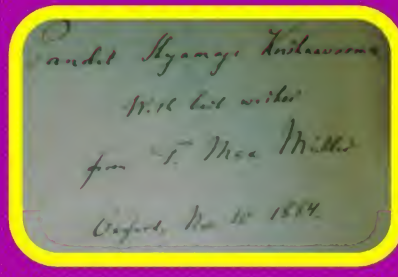 Pandit Shyamaji Krishnavarma
With best wishes
from F. Max Müller
Oxford, Nov 1884.